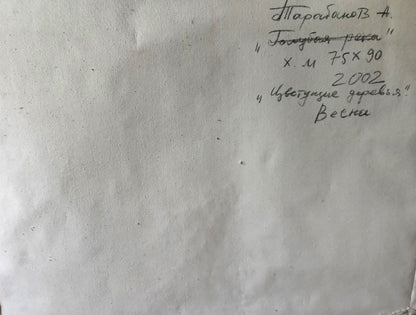 Тарабанов А.
„Голубая река"
х.м 75х90
2002
„Цветущие деревья".
Весна